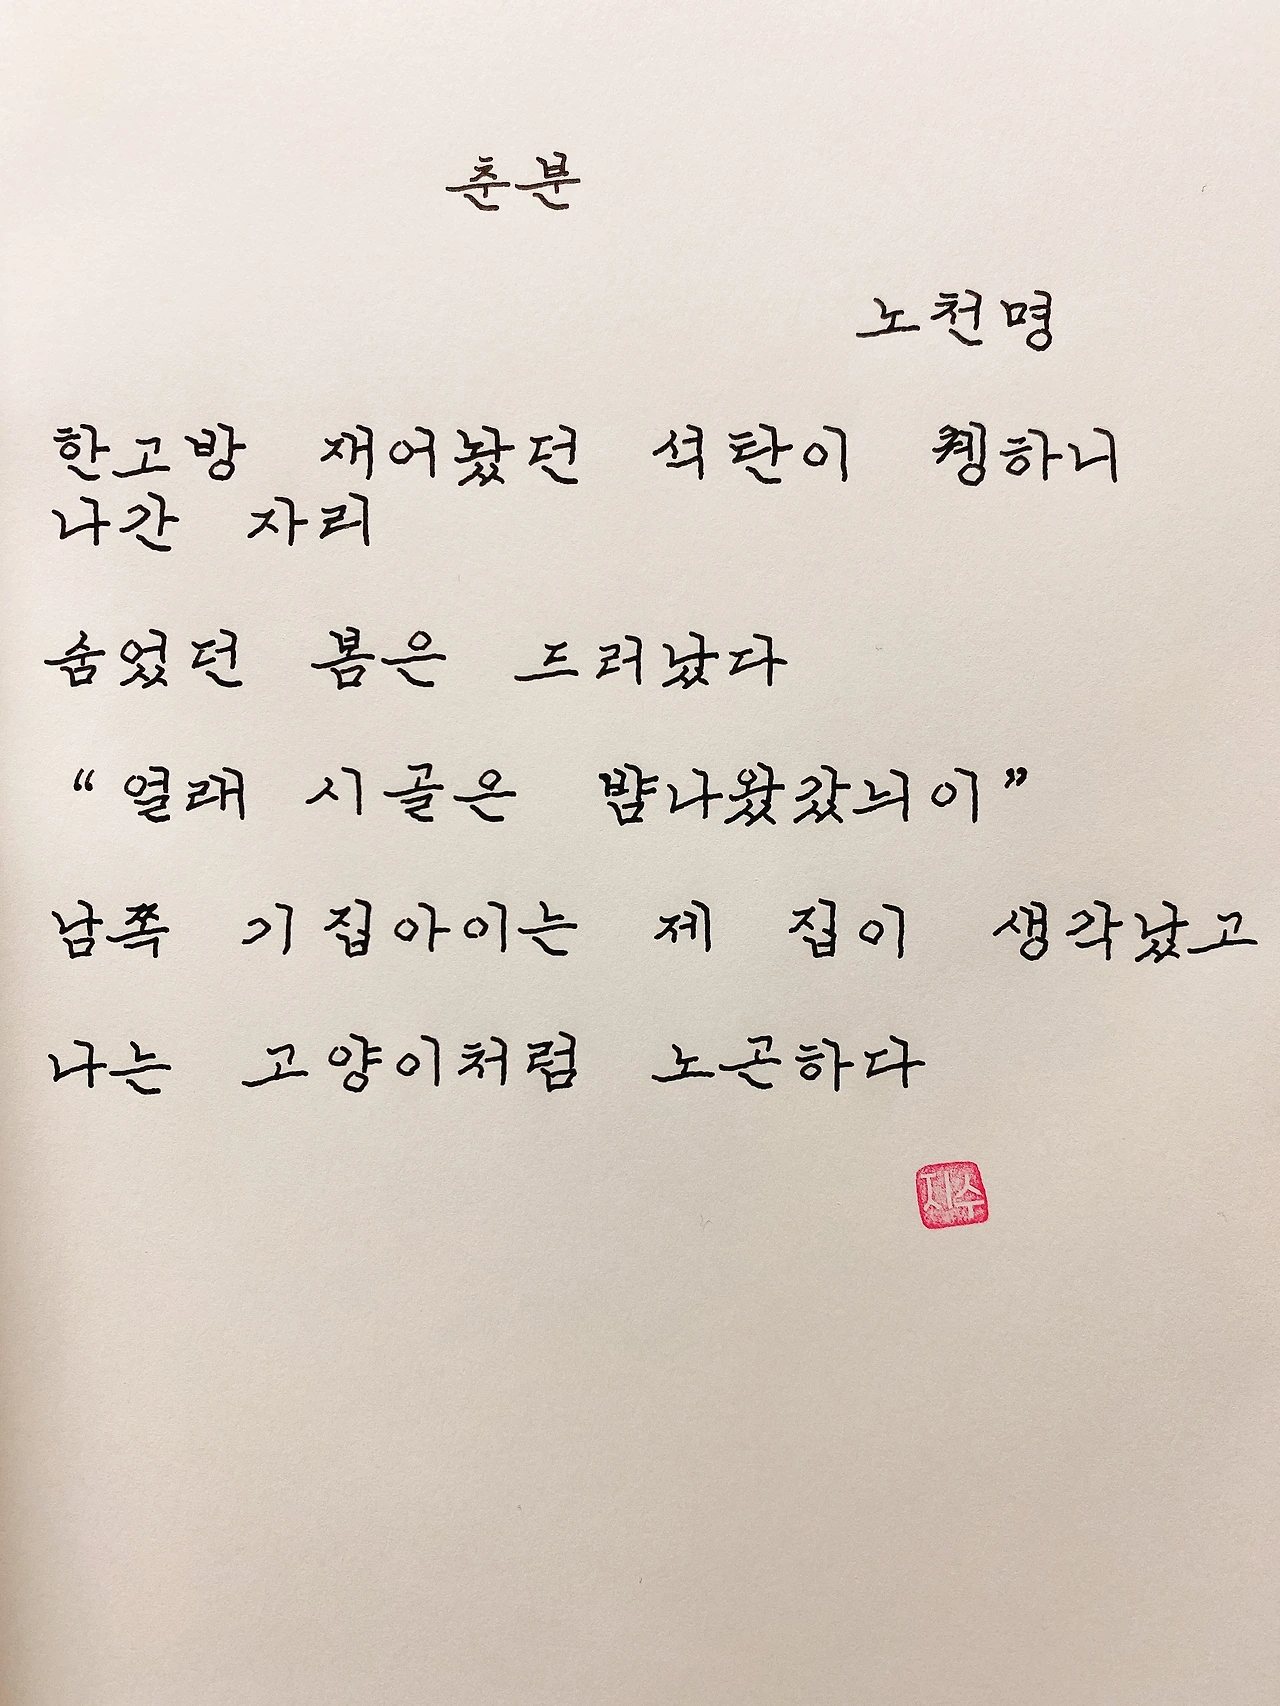 춘분
노천명
한고방 재어놨던 석탄이 휑하니
나간 자리
숨었던 봄은 드러났다
“열래 시골은 뱜나왔갔늬이”
남쪽 기집아이는 제 집이 생각났고
나는 고양이처럼 노곤하다
지수